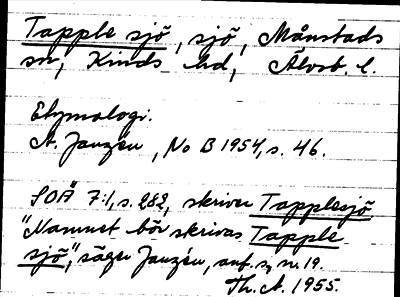 Tapple sjö, sjö, Månstads
sn, Kinds hd, Älvsb. l.
Etymologi.
A. Janzén, No B 1954, s. 46.
SOÄ 7:1, s. 282, skriver Tapplesjö
"Namnet bör skrivas Tapple
sjö", säger Janzén, anf. s, nr 19.
Th. A. 1955.